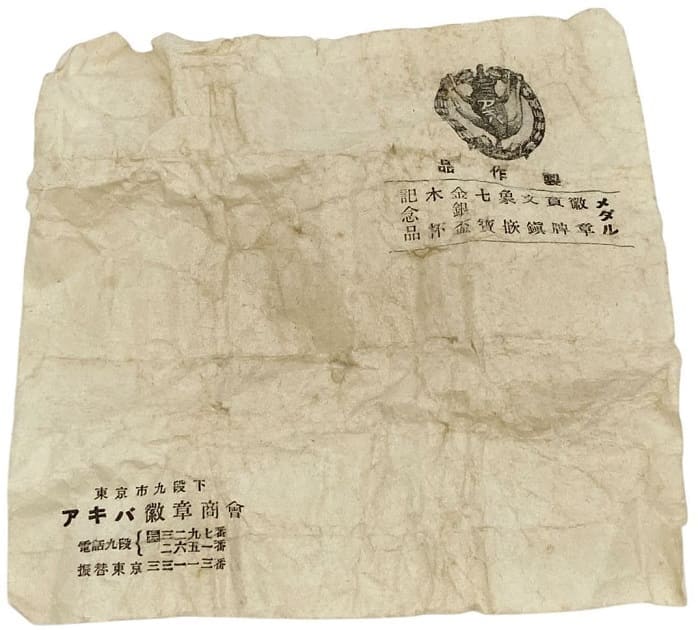 製作品
メダル
徽章
賞牌
文鎭
象嵌
七寳
金銀盃
木杯
記念品
東京市九段下
アキバ徽章商會
電話九段{長三二九七番
二六五一番
振替東京三三一一三番